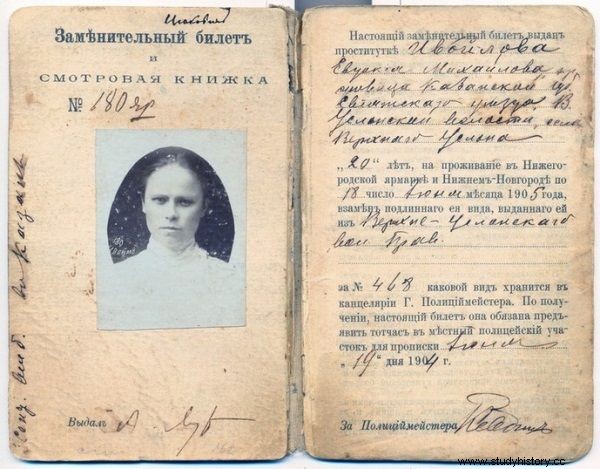 Замѣнительный билетъ
и
СМОТРОВАЯ КНИЖКА
№ 180 яр
Выдалъ
Настоящій замѣнительный билетъ выданъ
проституткѣ
Михайлова
Казанской
уѣзда, В.
Услонской волости, села
Верхняго Услона
„20“ лѣтъ, на проживаніе въ Нижего-
родской ярмаркѣ и Нижнемъ-Новгородѣ по
18 число Іюня мѣсяца 1905 года,
взамѣнъ подлиннаго ея вида, выданнаго ей
изъ Верхне-Услонскаго
вол Прав
за № 468 каковой видъ хранится въ
канцеляріи Г. Полиціймейстера. По полу-
ченіи, настоящій билетъ она обязана предъ-
явить тотчасъ въ мѣстный полицейскій уча-
стокъ для прописки Іюня
„19“ дня 1904 г.
За Полиціймейстера
www.studyhistory.cc